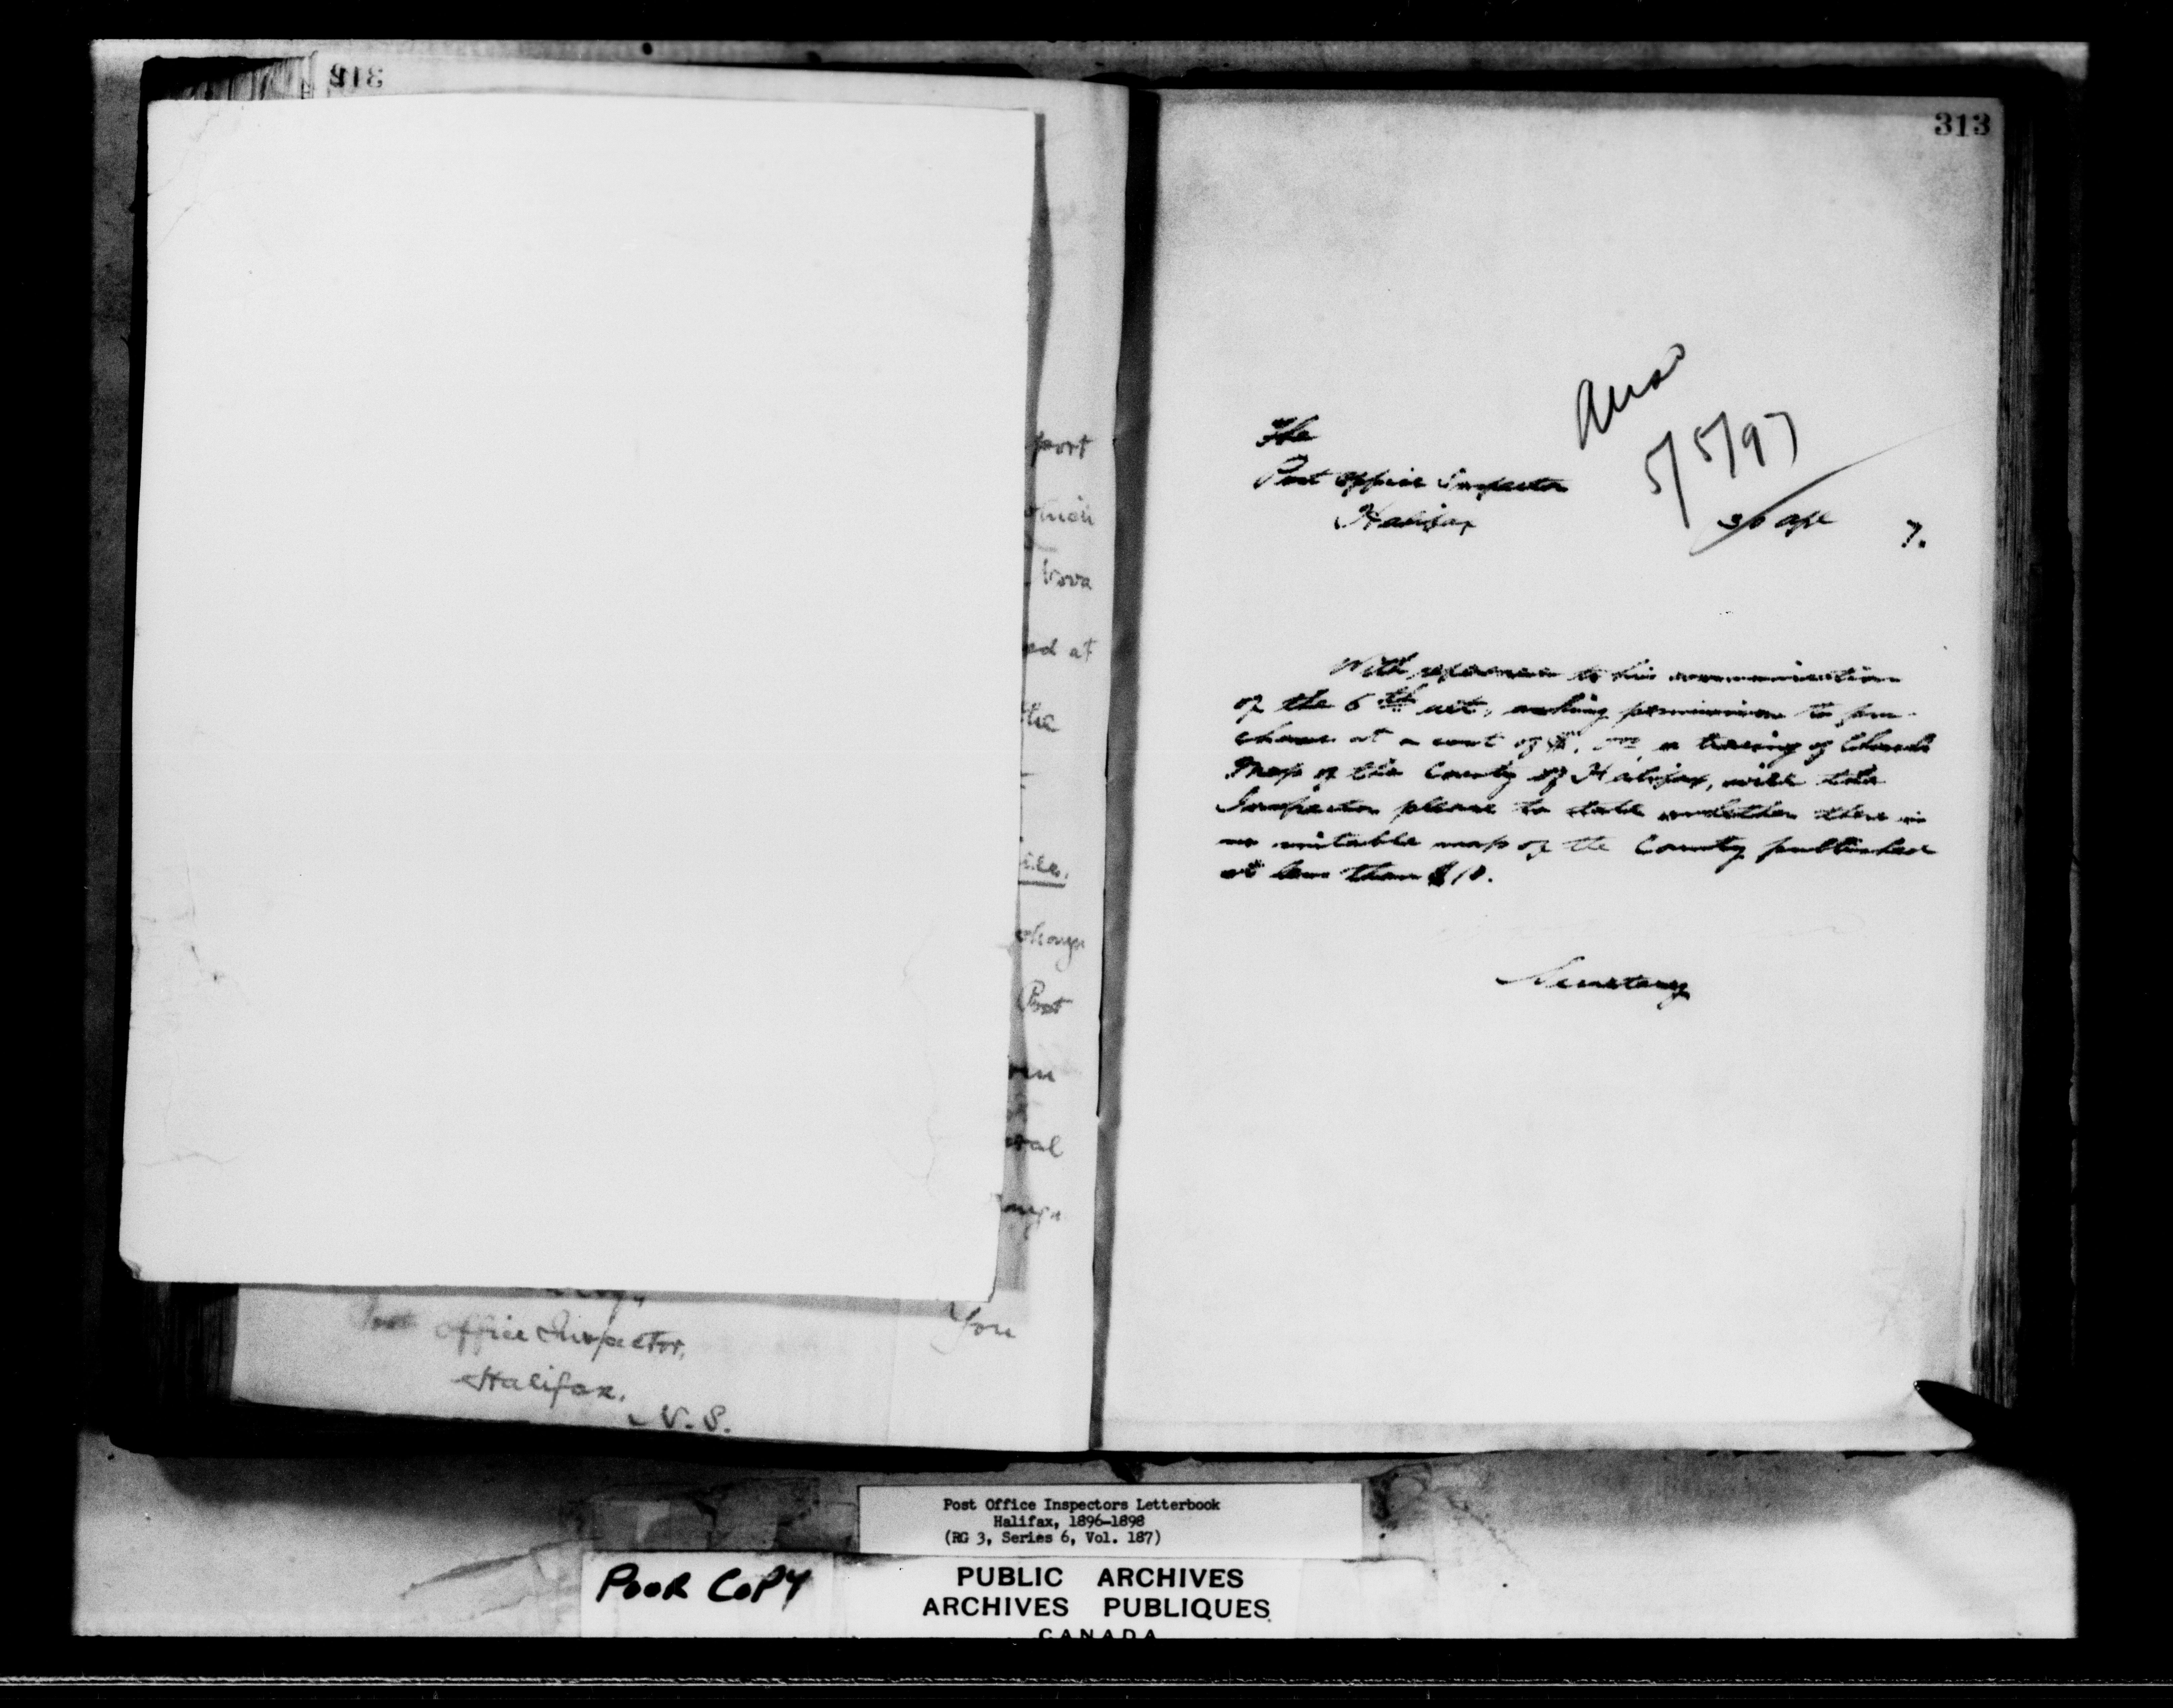 313
port
which
Nova
ed at
the
ices.
change
Post
eral
You
Post Office Inspector,
Halifax.
N. S.
313
Ansd
5/5/97
The
Post Office Inspector
Halifax
30 Apl 7.
With reference to his communication
of the 6th ult, asking permission to pur-
chase at a cost of a tracing of Church
Map of the County of Halifax, will the
Inspector please to state whether there is
no suitable map of the County published
at less than $10.
Secretary
Post Office Inspectors Letterbook
Halifax, 1896-1898
(RG 3, Series 6, Vol. 187)
POOR COPY
PUBLIC ARCHIVES
ARCHIVES PUBLIQUES
CANADA